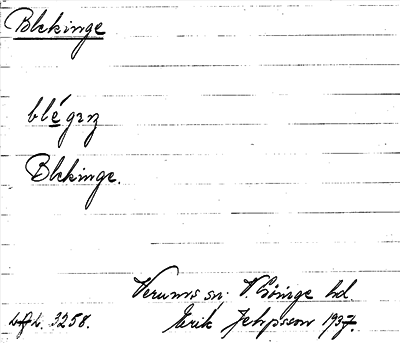 Blekinge
blégɪnz
Blekinge.
Verums sn. V. Göinge hd.
3258. Erik Jeppsson 1937.